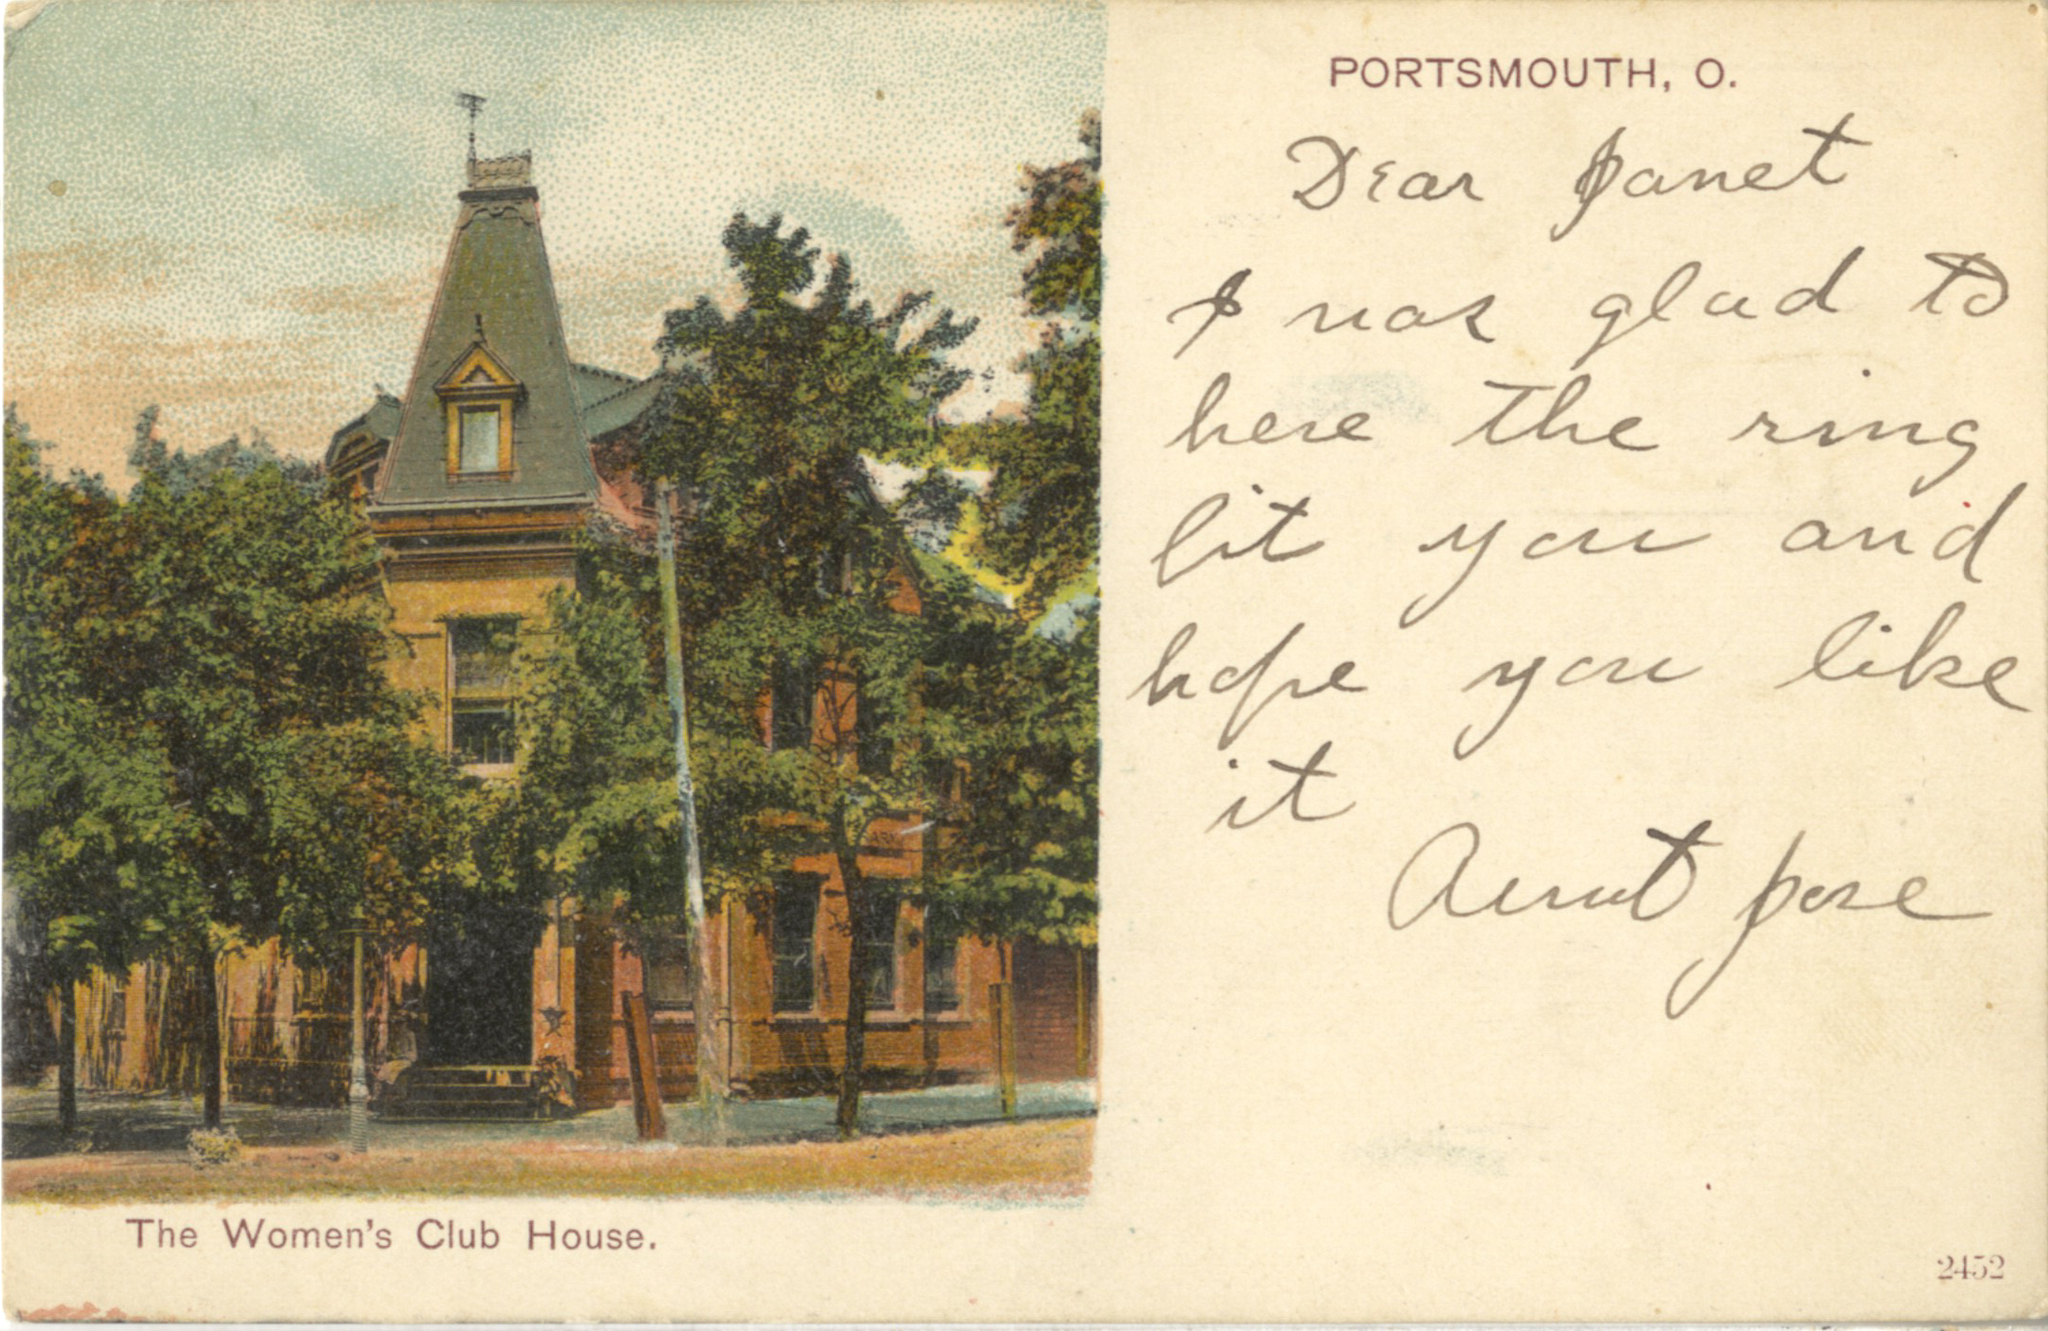 PORTSMOUTH, O.
Dear Janet
I was glad to
here the ring
fit you and
hope you like
it
Aunt
The Women's Club House.
2452